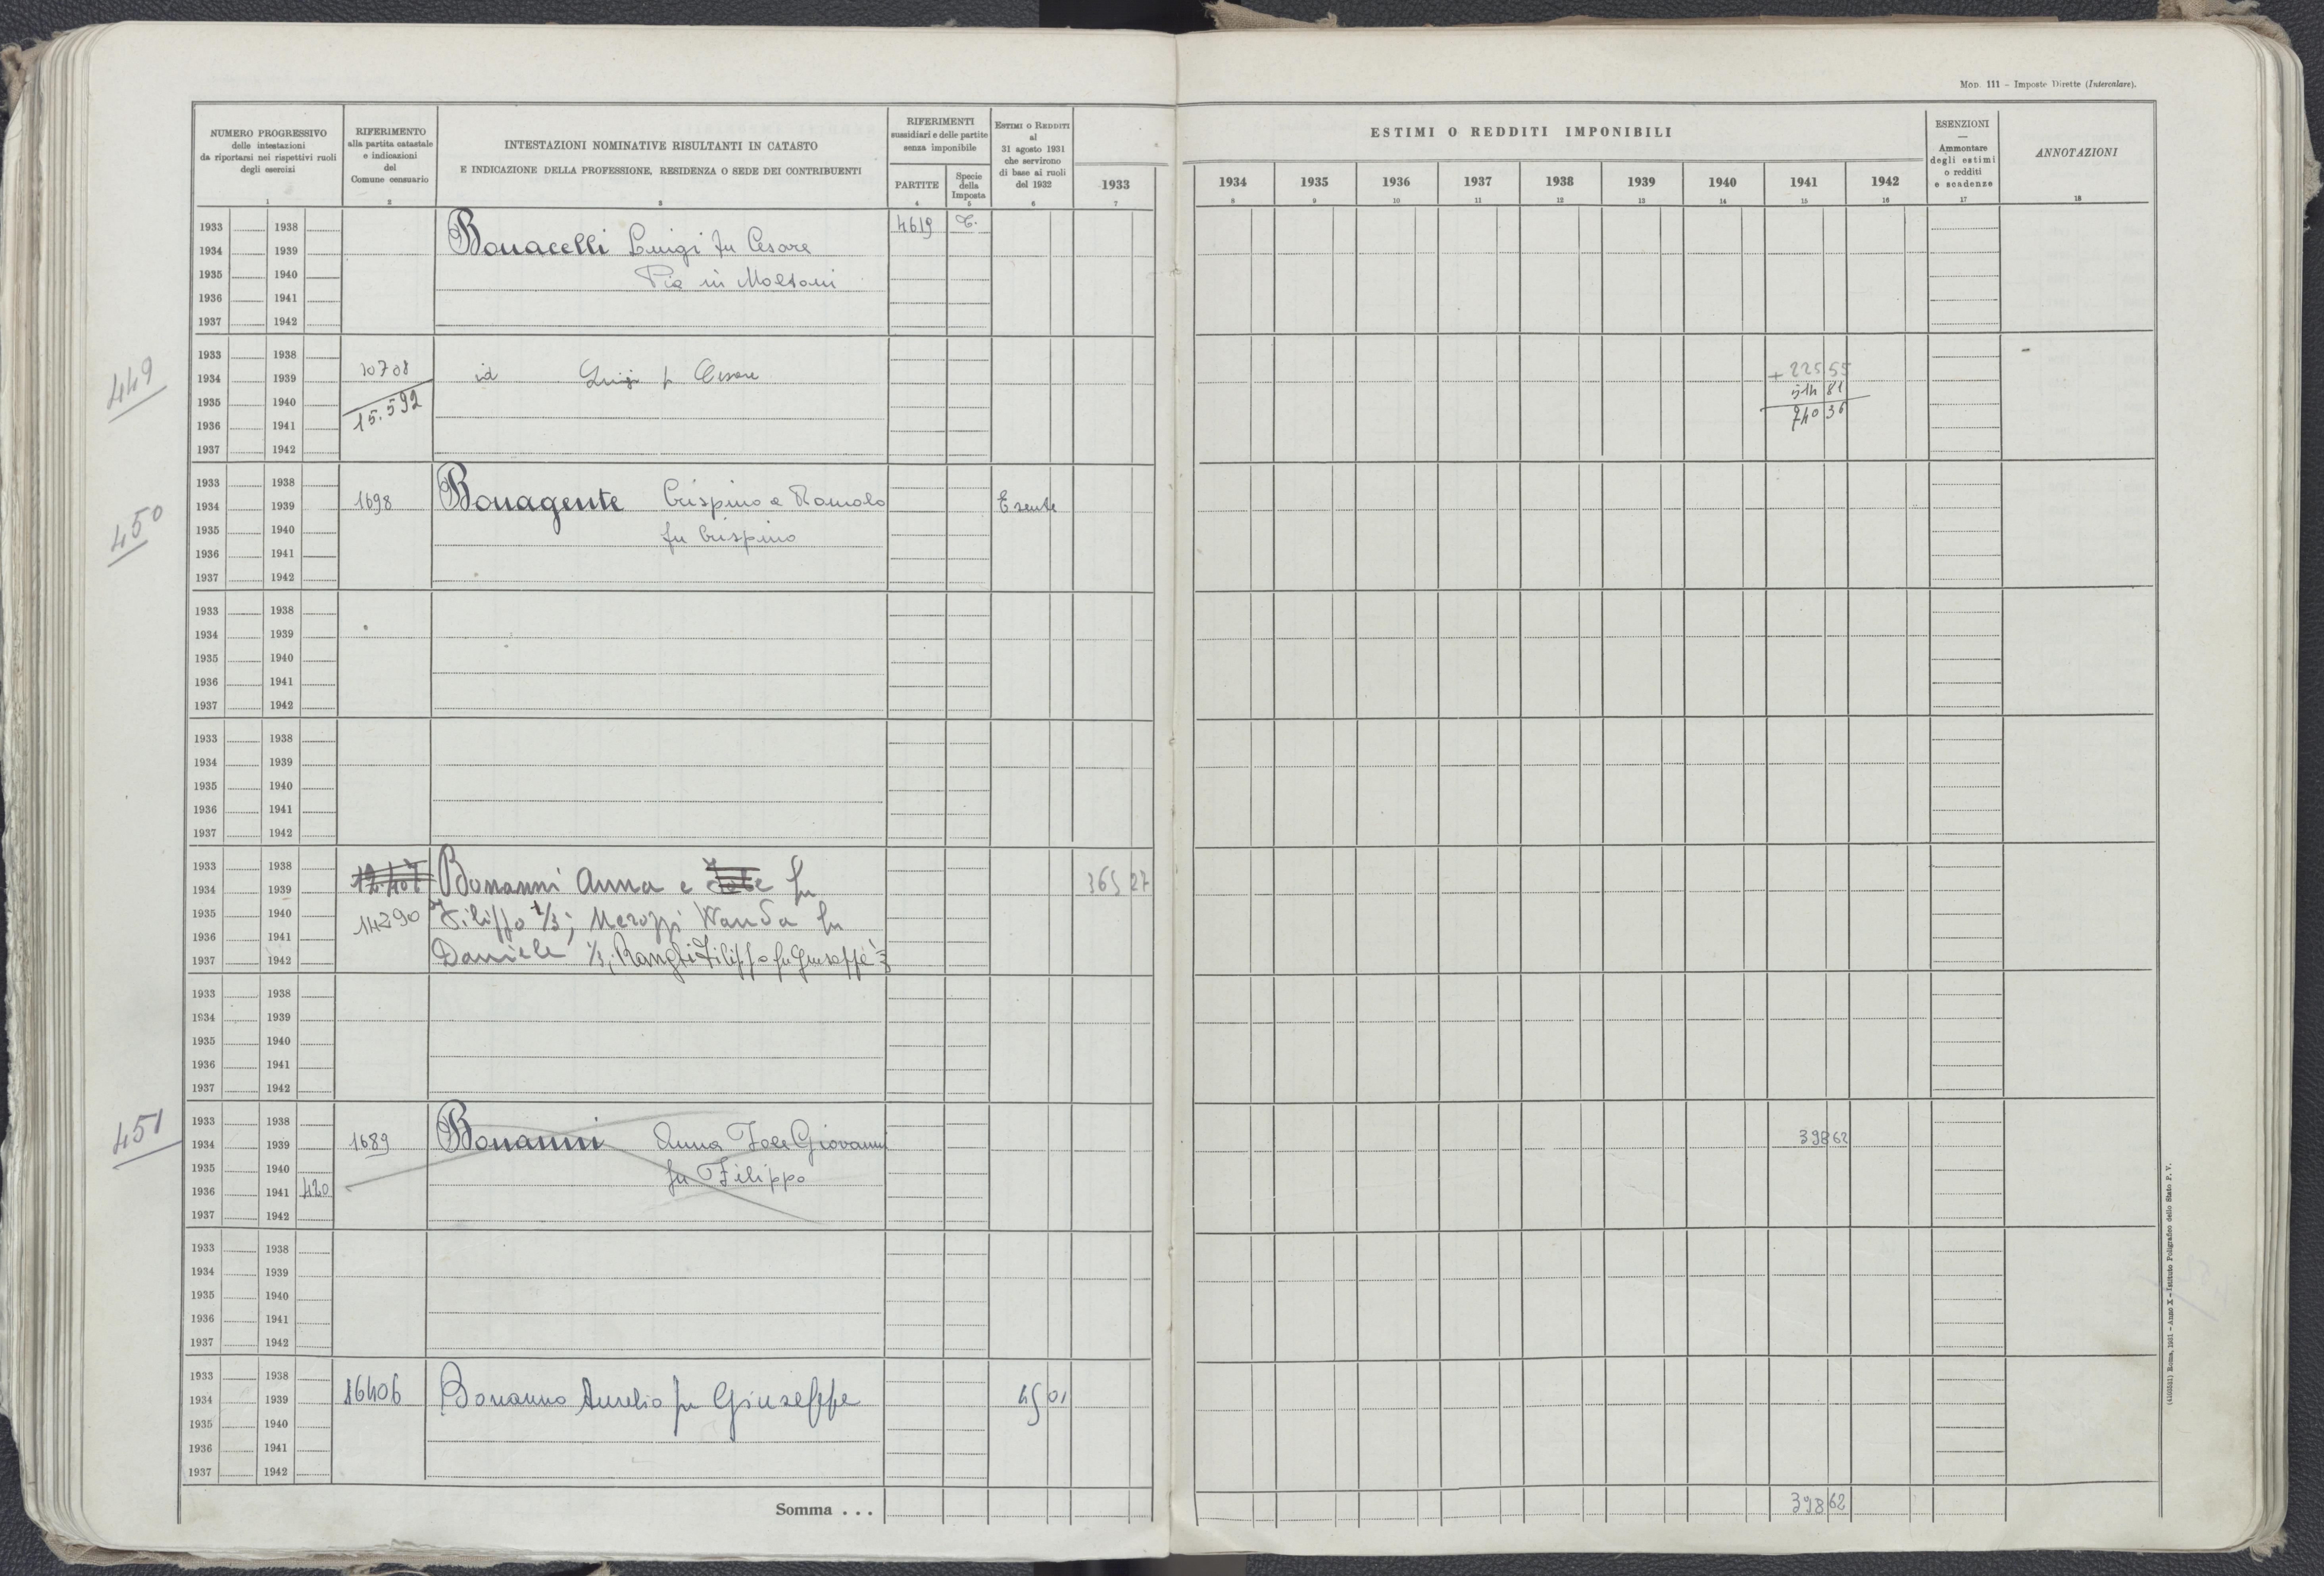 MOD. 111 - Imposte Dirette (Intercalare).
NUMERO PROGRESSIVO
delle intestazioni
da riportarsi nei rispettivi ruoli
degli esercizi
1
RIFERIMENTO
alla partita catastale
e indicazioni
del
Comune censuario
2
INTESTAZIONI NOMINATIVE RISULTANTI IN CATASTO
E INDICAZIONE DELLA PROFESSIONE, RESIDENZA O SEDE DEI CONTRIBUENTI
3
RIFERIMENTI
sussidiari e delle partite
senza imponibile
PARTITE
4
Specie
della
Imposta
5
ESTIMI O REDDITI
al
31 agosto 1931
che servirono
di base ai ruoli
del 1932
6
ESTIMI O REDDITI IMPONIBILI
1933 1934 1935 1936 1937 1938 1939 1940 1941 1942
7 8 9 10 11 12 13 14 15 16
ESENZIONI
—
Ammontare
degli estimi
o redditi
e scadenze
17
ANNOTAZIONI
18
1933 1938 4619 T.
1934 1939 Bonacelli Luigi fu Cesare
1935 1940 Pia in
1936 1941
1937 1942
449
1933 1938
1934 1939 10708 id Luigi f Cesare + 225 55
1935 1940 15.592 514 81
1936 1941 740 36
1937 1942
450
1933 1938
1934 1939 1698 Bonagente Crispino e Romolo Esente
1935 1940 fu Crispino
1936 1941
1937 1942
1933 1938
1934 1939
1935 1940
1936 1941
1937 1942
1933 1938
1934 1939
1935 1940
1936 1941
1937 1942
1933 1938
1934 1939 Bonanni Anna e fu 365 27
1935 1940 14290 Filippo 1/3; Merozzi Wanda fu
1936 1941
1937 1942 Daniele 1/3; Filippo fu Giuseppe 1/3
1933 1938
1934 1939
1935 1940
1936 1941
1937 1942
451
1933 1938
1934 1939 1689 Bonanni Anna Iole Giovanni 398 62
1935 1940 fu Filippo
1936 1941 420
1937 1942
1933 1938
1934 1939
1935 1940
1936 1941
1937 1942
1933 1938
1934 1939 16406 Bonanno Aurelio fu Giuseppe 45 01
1935 1940
1936 1941
1937 1942
Somma . . . 398 62
(4100531) Roma, 1931 - Anno X - Istituto Poligrafico dello Stato P. V.